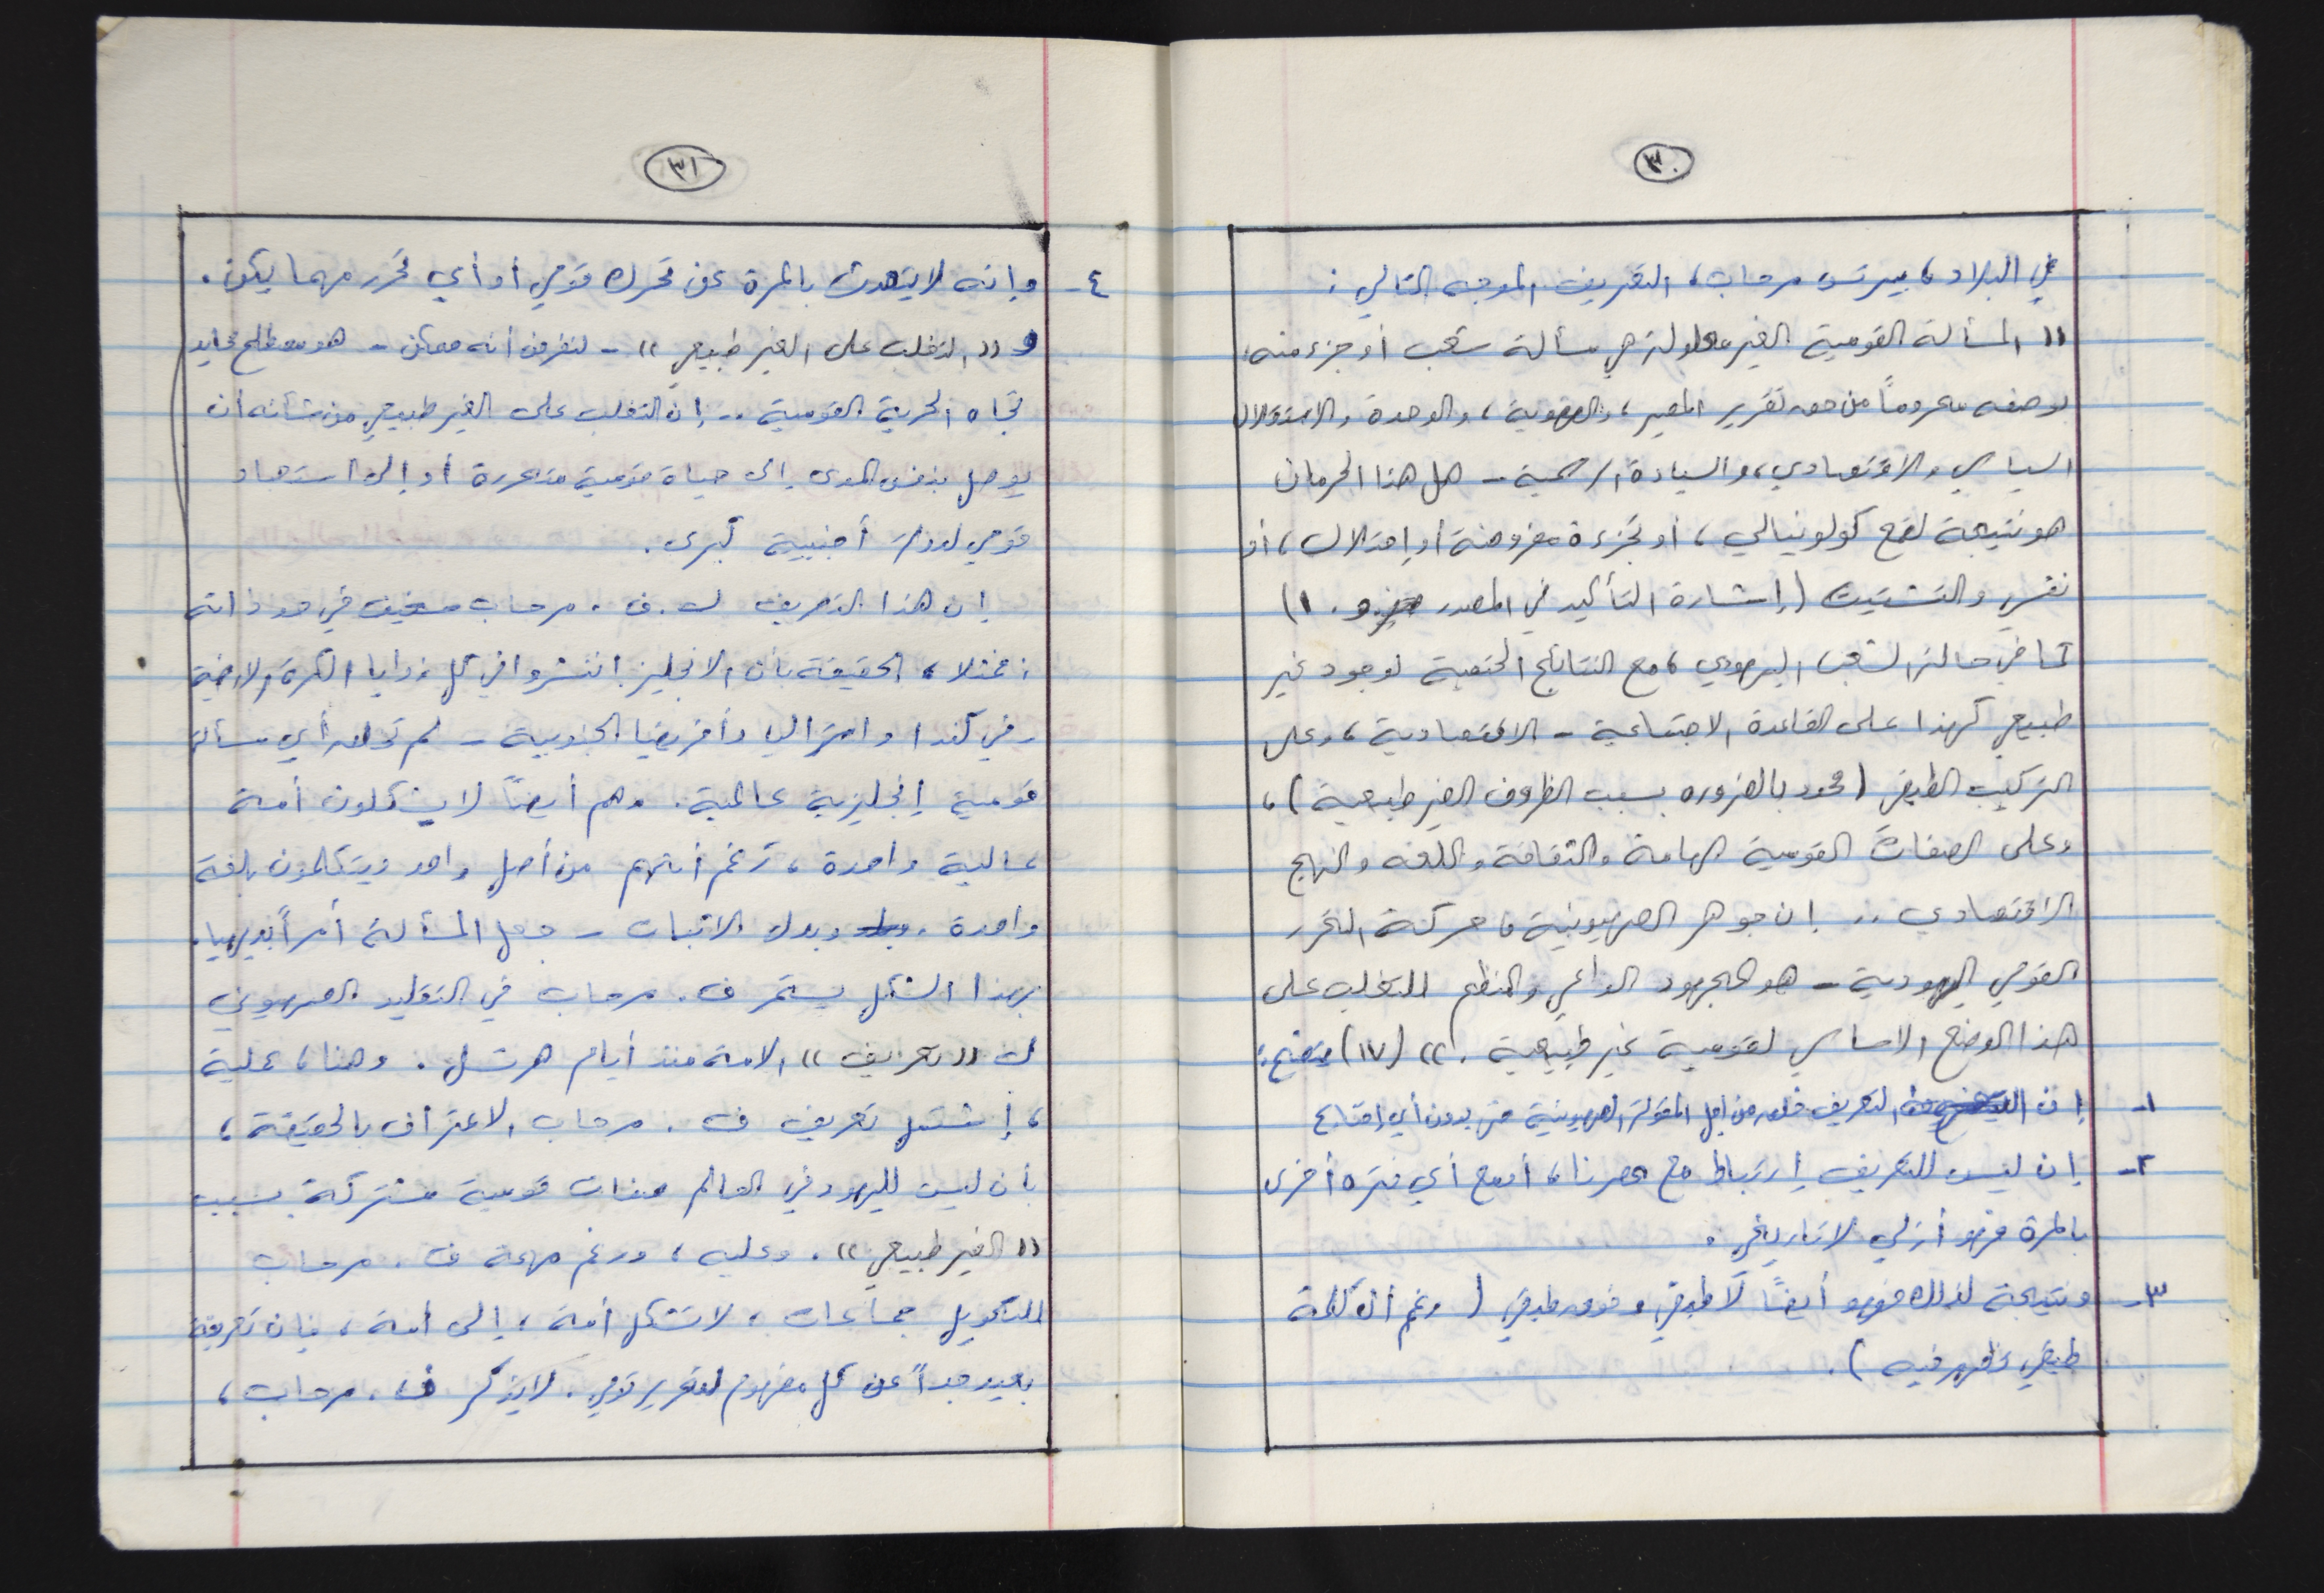 ٣٠
في البلاد، بيرتس مرحاب، التعريف الموجه التالي :
"المسألة القومية الغير محلولة هي مسألة شعب أو جزء منه،
بوصفه محروماً من حق تقرير المصير، والهوية، والوحدة والاستقلال
السياسي والاقتصادي، والسيادة الرسمية - هل هذا الحرمان
هو نتيجة لقمع كولونيالي، أو تجزءة مفروضة أو احتلال، أو
نفي والتشتيت (إشارة التأكيد في المصدر .و.١)
كما في حالة الشعب اليهودي، مع النتائج الحتمية لوجود غير
طبيعي كهذا على القاعدة الاجتماعية - الاقتصادية، وعلى
التركيب الطبقي (محدود بالضروره بسبب الظروف الغير طبيعية)،
وعلى الصفات القومية الهامة والثقافة واللغه والنهج
الاقتصادي .. إن جوهر الصهيونية، حركة التحرر
القومي اليهودية - هو المجهود الواعي والمنظم للتغلب على
هذا الوضع الاساسي لقومية غير طبيعية." (١٧) يتضح:
١- إن التعريف خلق من أجل المقولة الصهيونية من بدون أي إقناع
٢- إن ليس للتعريف إرتباط مع عصرنا، أو مع أي فتره أخرى
بالمرة فهو أزلي لا تاريخي.
٣- ونتيجة لذلك فهو أيضاً لا طبقي وفوق طبقي (رغم أن كلمة
طبقي تظهر فيه).
٣١
٤- وإنه لا يتحدث بالمرة عن تحرك قومي أو أي تحرر مهما يكون.
و "التغلب على الغير طبيعي" - لنفرض أنه ممكن - هو مصطلح محايد
تجاه الحرية القومية .. إن التغلب على الغير طبيعي من شأنه أن
يوصل بنفس المدى إلى حياة قومية متحررة أو إلى استعباد
قومي لدولة أجنبية كبرى.
إن هذا التعريف ل .ف. مرحاب سخيف في حد ذاته
: فمثلا، الحقيقة بأن الانجليز انتشروا في كل زوايا الكرة الارضية
- في كندا واستراليا وأفريقيا الجنوبية - لم تخلق أي مسألة
قومية إنجليزية عالمية. وهم أيضاً لا يشكلون أمة
عالمية واحدة، رغم أنهم من أصل واحد ويتكلمون بلغة
واحدة. وبدل الاثبات - جعل المسألة أمراً بديهيا.
بهذا الشكل يستمر ف. مرحاب في التقليد الصهيوني
ل "تعريف" الامة منذ أيام هرتسل. وهنا، عملية
، إشتمل تعريف ف. مرحاب الاعتراف بالحقيقة،
بأن ليس لليهود في العالم صفات قومية مشتركة بسبب
"الغير طبيعي". وعليه، ورغم مهمة ف. مرحاب
لتحويل جماعات، لا تشكل أمة، إلى أمة، فإن تعريفه
بعيد جداً عن كل مفهوم لتحرير قومي. لا يذكر ف. مرحاب،